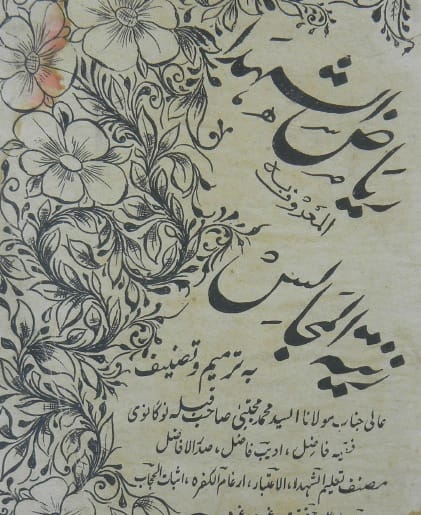 ریاض الشہداء
المعروف بہ
زینۃ المجالس
بہ ترمیم و تصنیف
عالی جناب مولانا السید محمد مجتبیٰ صاحب قبلہ نوگانوی
فقیہ فاضل، ادیب فاضل، صدر الافاضل
مصنف تعلیم الشہداء، الاعتبار، ارغام الکفرہ، اثبات الحجاب